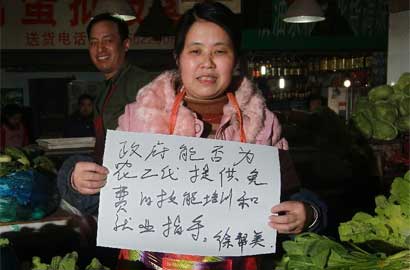 送货电话
政府能否为
农二代提供免
费的技能培训和
就业指导。徐帮美